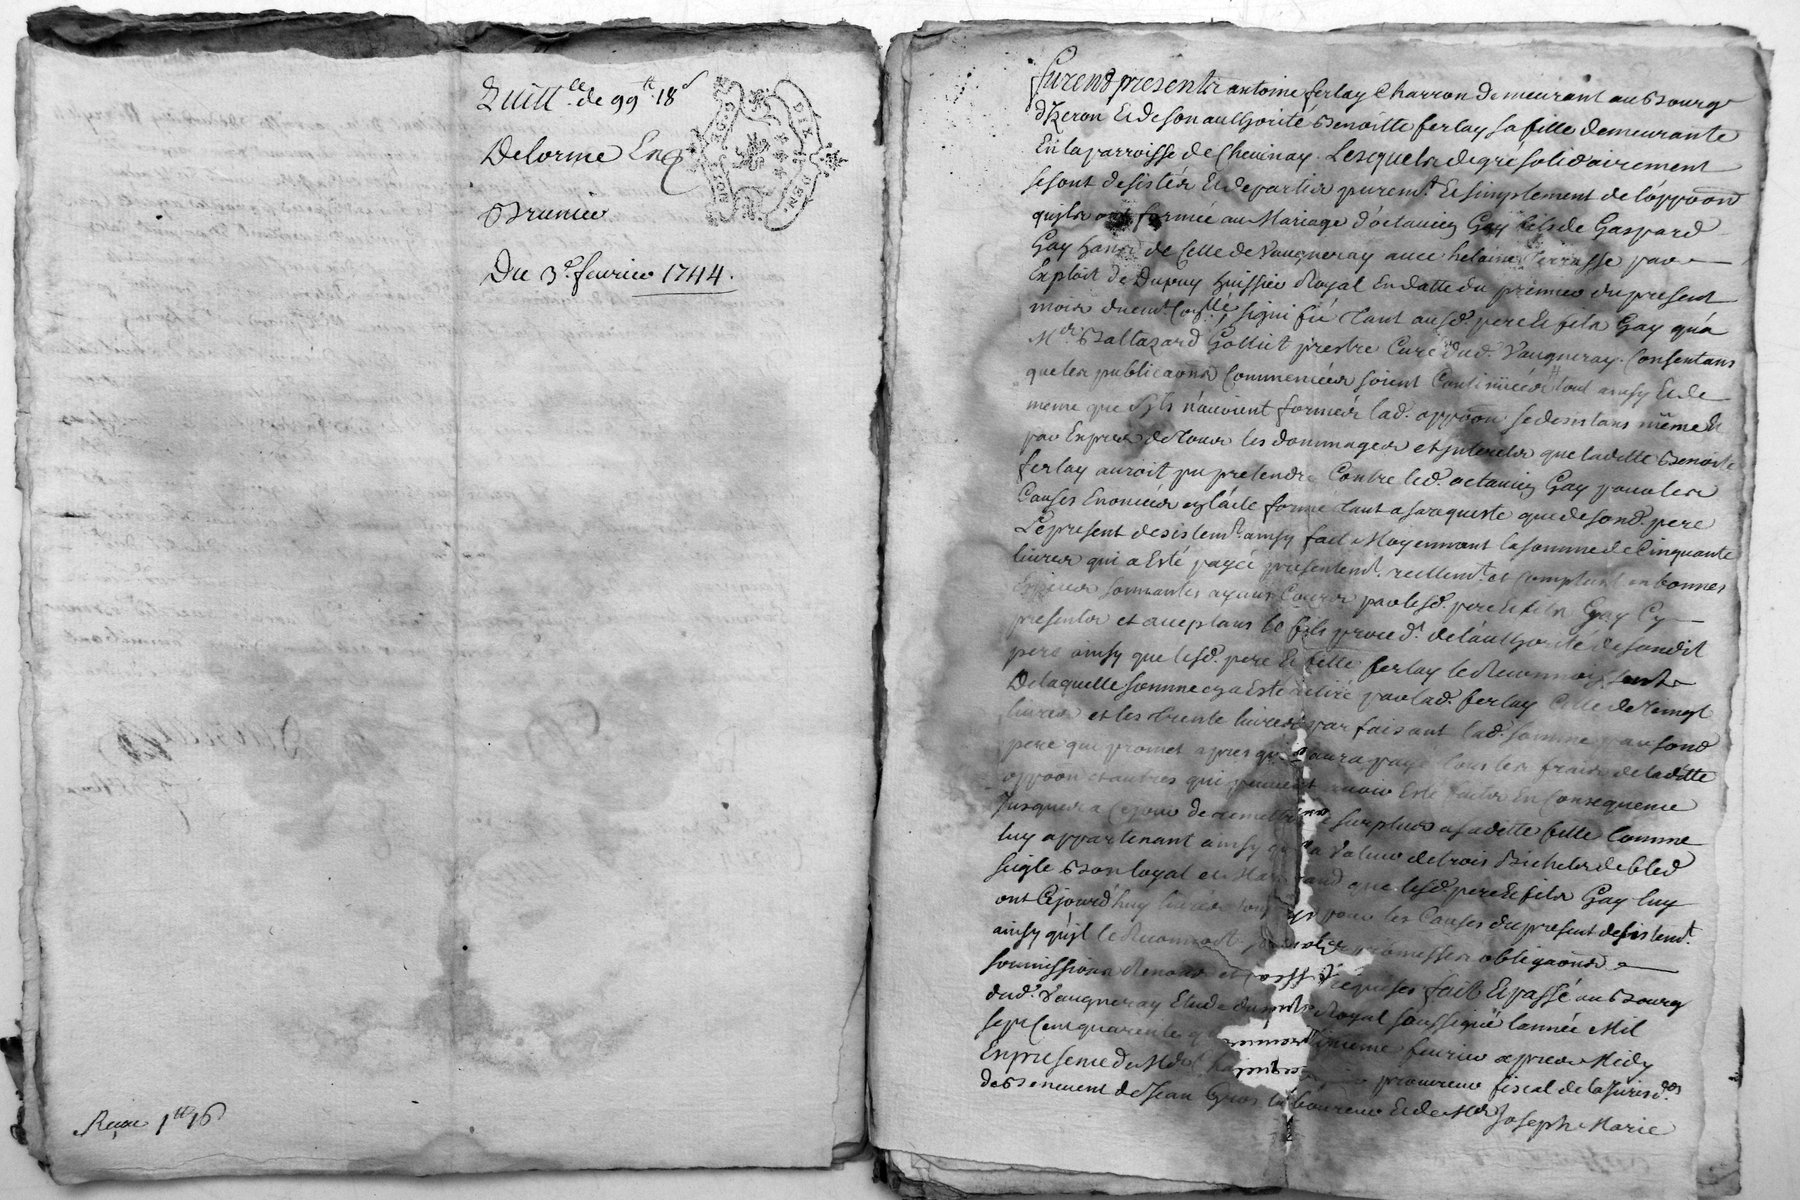 Quitt.ce de 99 tt 18 d
Delorme Et
Brunier
Du 3e. fevrier 1744.
Reçu 1tt 16
furent presents antoine ferlay Charron demeurant au Bourg
d'Izeron Et de son authorité Benoitte ferlay sa fille demeurante
En la parroisse de Chevinay. Lesquels de gré solidairement
se sont desistés Et departis purem.t Et simplement de l'oppoôn
quils ont formée au Mariage d'octavien Gay fils de Gaspard
Gay de Celle de Vaugneray avec helaine Terrasse par
Exploit de Dupuy huissier Royal En datte du premier du present
mois duem.t Conllé, signifié tant aux sd. pere Et fils Gay qu'a
Mre. Baltazard Golliet prestre Curé dud. Vaugneray. Consentans
que les publicaôns Commencées soient Continüées tout ainsy Et de
même que s'ils n'avoient formée lad. oppoôn se desistans même Et
par Exprès de tous les dommages et interets que laditte Benoite
ferlay auroit pu pretendre Contre led. octavien Gay pour les
Causes Enoncées en l'acte formé tant a sa requeste que de sond. pere
Le present desistem.t ainsy fait Moyennant la somme de Cinquante
livres qui a Esté payée presentem.t reellem.t et comptant en bonnes
Especes sonnantes ayans Cours par les d. pere Et fils Gay Cy
presents et acceptans le fils proced.t de l'authorité de sondit
pere ainsy que lesd. pere Et fille ferlay le Reconnoissent
De laquelle somme en a Esté retiré par lad. ferlay Celle de Vingt
livres et les trente livres parfaisant lad. somme par sond
pere que promet apres qu'il aura payé tous les frais de laditte
oppoôn et autres qui peuvent avoir Esté faits En Consequence
Jusques a Ce jour de remettre le surplus a saditte fille Comme
luy appartenant ainsy que la Valeur de trois Bichets de bled
seigle Bon loyal et Marchand que lesd. pere Et fils Gay luy
ont Cejourd'huy livrés pour les Causes du present desistem.t
ainsy qu'il le Reconnoit promesses obligaôns
soumissions Renons et Clauses requises fait Et passé au Bourg
dud. Vaugneray Etude du no.re Royal soussigné l'année Mil
sept Cent quarente fevrier apres Midy
En presence de procureur fiscal de la Jurisd.on
de Benevent de Jean Gros laboureur Et de Mre Joseph Marie